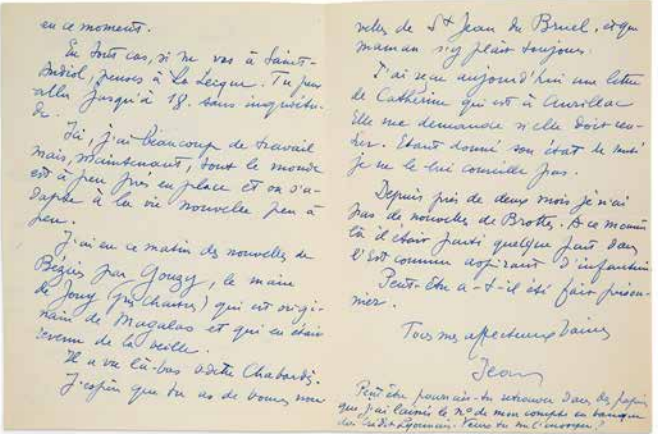 en ce moment.
En tout cas, si tu vas à Saint-
Andiol, penses à La Leique. Tu peux
aller jusqu'à 18. sans inquiétu-
de.
Ici, j'ai beaucoup de travail
mais, maintenant, tout le monde
est à peu près en place et on s'a-
dapte à la vie nouvelle peu à
peu.
J'ai eu ce matin des nouvelles de
Béziers par Gouzy, le maire
de Jouy (près Chartres) qui est origi-
naire de Magalas et qui en était
revenu de la veille.
Il a vu là-bas Odette Chabardès.
J'espère que tu as de bonnes nou
velles de St Jean du Bruel, et que
maman s'y plait toujours.
J'ai reçu aujourd'hui une lettre
de Catherine qui est à Aurillac
Elle me demande si elle doit ren-
trer. Etant donné son état de santé
je ne le lui conseille pas.
Depuis près de deux mois je n'ai
pas de nouvelles de Brottes. A ce moment
là il était parti quelque part dans
l'Est comme aspirant d'infanterie
Peut-être a-t-il été fait prison-
nier.
Tous mes affectueux baisers
Jean
Peut être pourrais-tu retrouver dans des papiers
que j'ai laissés le n° de mon compte en banque
du Crédit Lyonnais. Veux tu me l'envoyer?